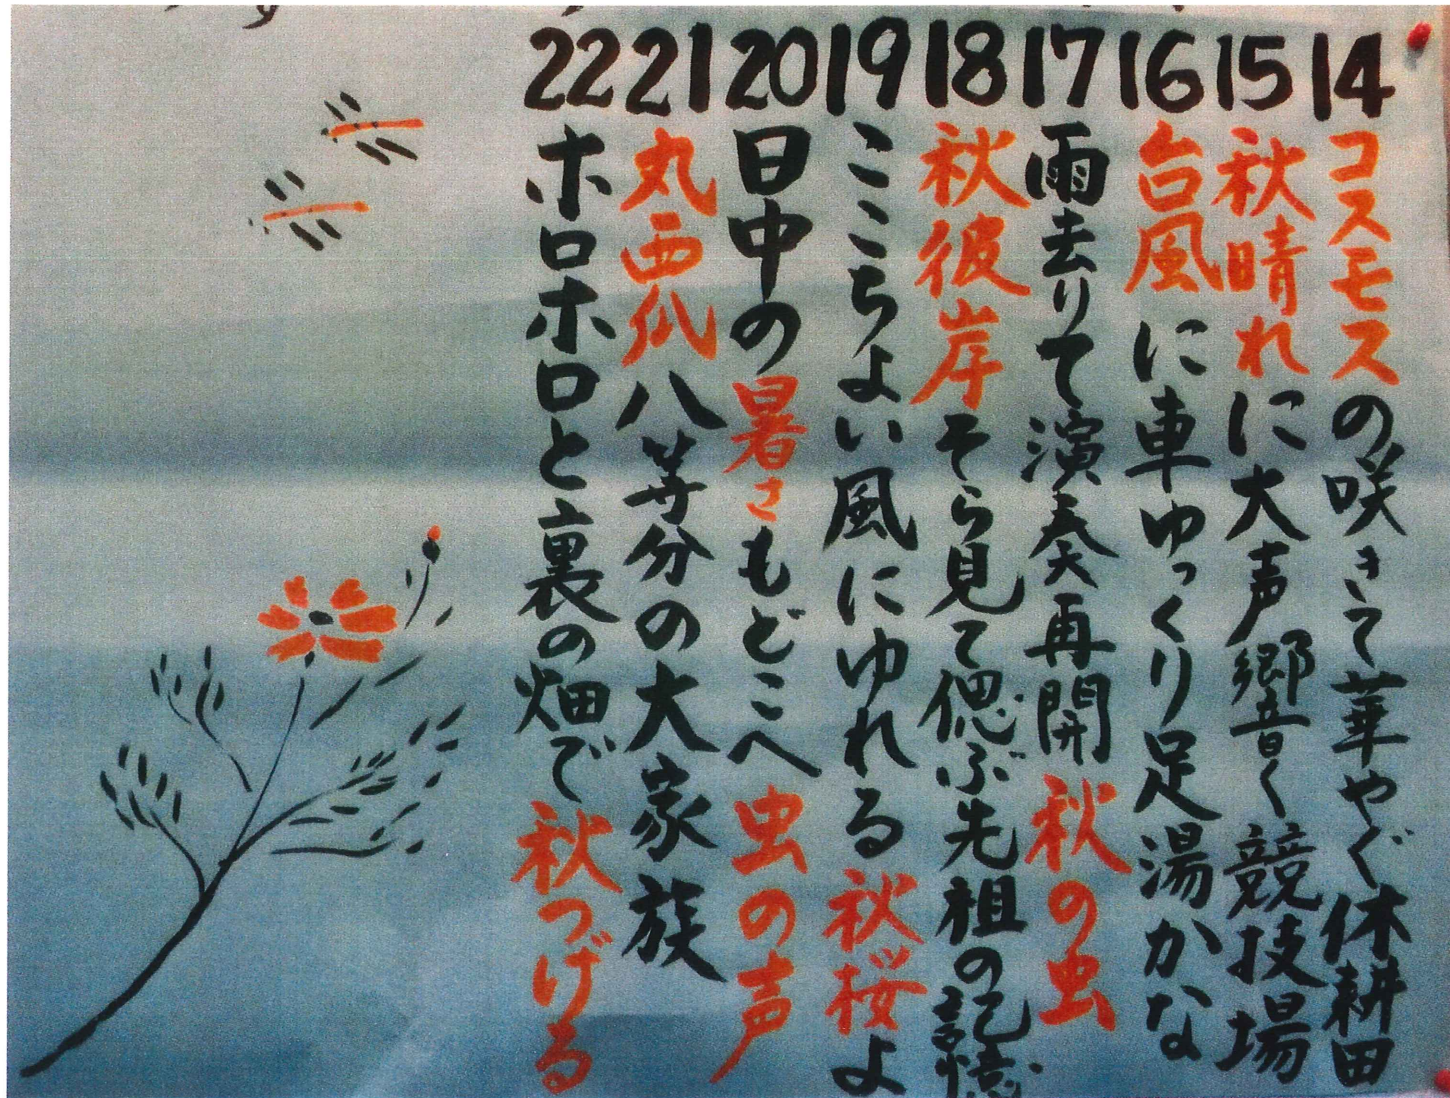 14 コスモスの咲きて華やぐ休耕田
15 秋晴れに大声響く競技場
16 台風に車ゆっくり足湯かな
17 雨去りて演奏再開秋の虫
18 秋彼岸そら見て偲ぶ先祖の記憶
19 ここちよい風にゆれる秋桜よ
20 日中の暑さもどこへ虫の声
21 丸西瓜八等分の大家族
22 ホロホロと裏の畑で秋つげる